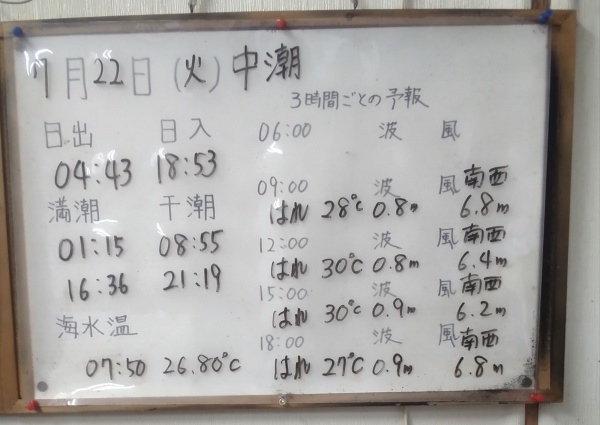 7月22日(火)中潮
3時間ごとの予報
日出 日入
04:43 18:53
満潮 干潮
01:15 08:55
16:36 21:19
海水温
07:50 26.80℃
06:00 波 風
09:00 波 風 南西
はれ 28℃ 0.8m 6.8m
12:00 波 風 南西
はれ 30℃ 0.8m 6.4m
15:00 波 風 南西
はれ 30℃ 0.9m 6.2m
18:00 波 風 南西
はれ 27℃ 0.9m 6.8m